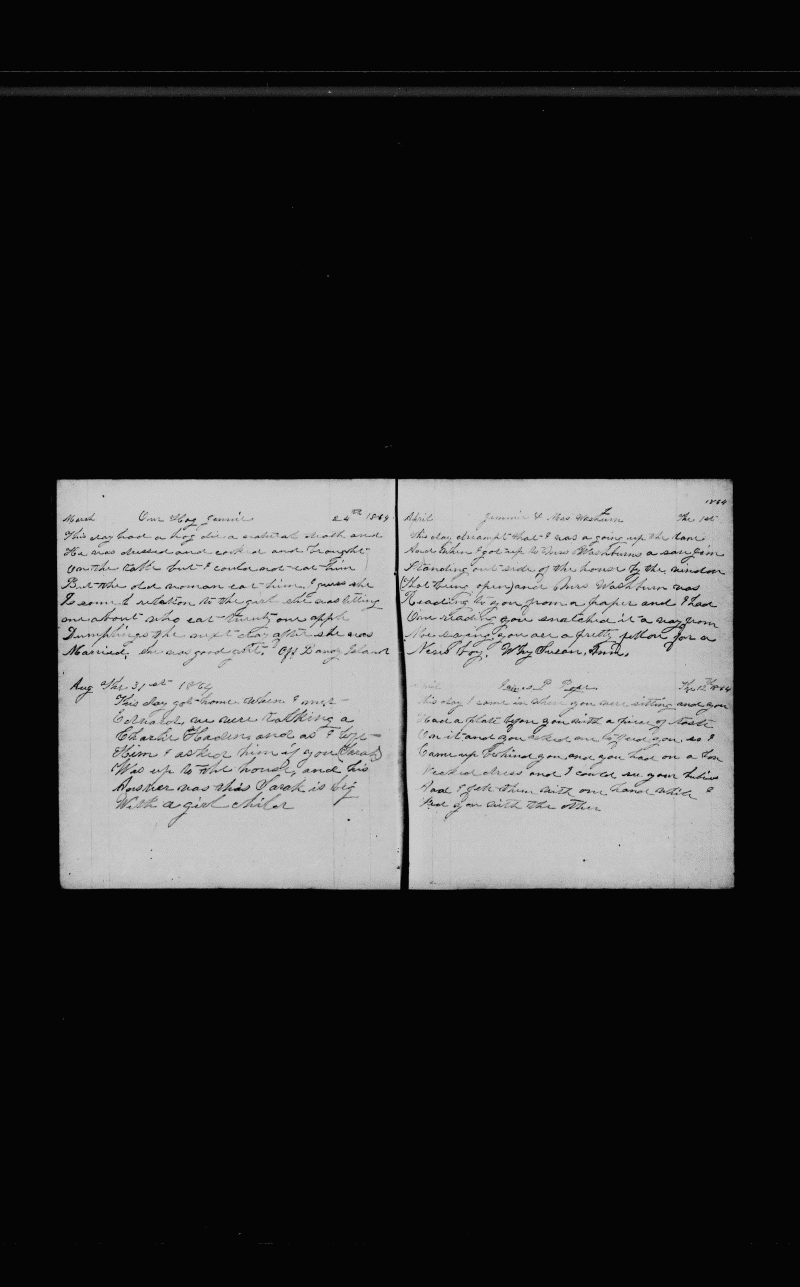 March Our Hog Jennie 24th 1864
This day had a hog die a natural death and
He was dressed and cooked and brought
On the table but I could not eat him
But the old woman eat him, I guess she
Is some relation to the girl she was telling
me about who eat twenty one apple
Dumplings the next day after she was
Married. she was good grit. Island
Aug The 31st 1864
This day got home when I met
Edward, we were talking a
Charlie Haskins and as I left
Him I asked him if you (Sarah)
Was up to the house, and his
Answer was this Sarah is big
With a girl child
1864
April Jennie & Mrs Washburn The 1st
This day dreampt that I was a going up the lane
And when I got up to Mrs Washburns a saw him
Standing out side of the house by the window
(that being open) and Mrs Washburn was
Reading to you from a paper and I had
One reading you snatched it a way from
Me saying you are a pretty fellow for a
News boy. Why Susan, Ann.
April The 12th 1864
This day I came in when you were sitting and you
Had a plate before you with a piece of toast
On it and you asked me to feed you, so I
Came up behind you and you had on a low
Necked dress and I could see your
And I felt them with one hand while I
Fed you with the other